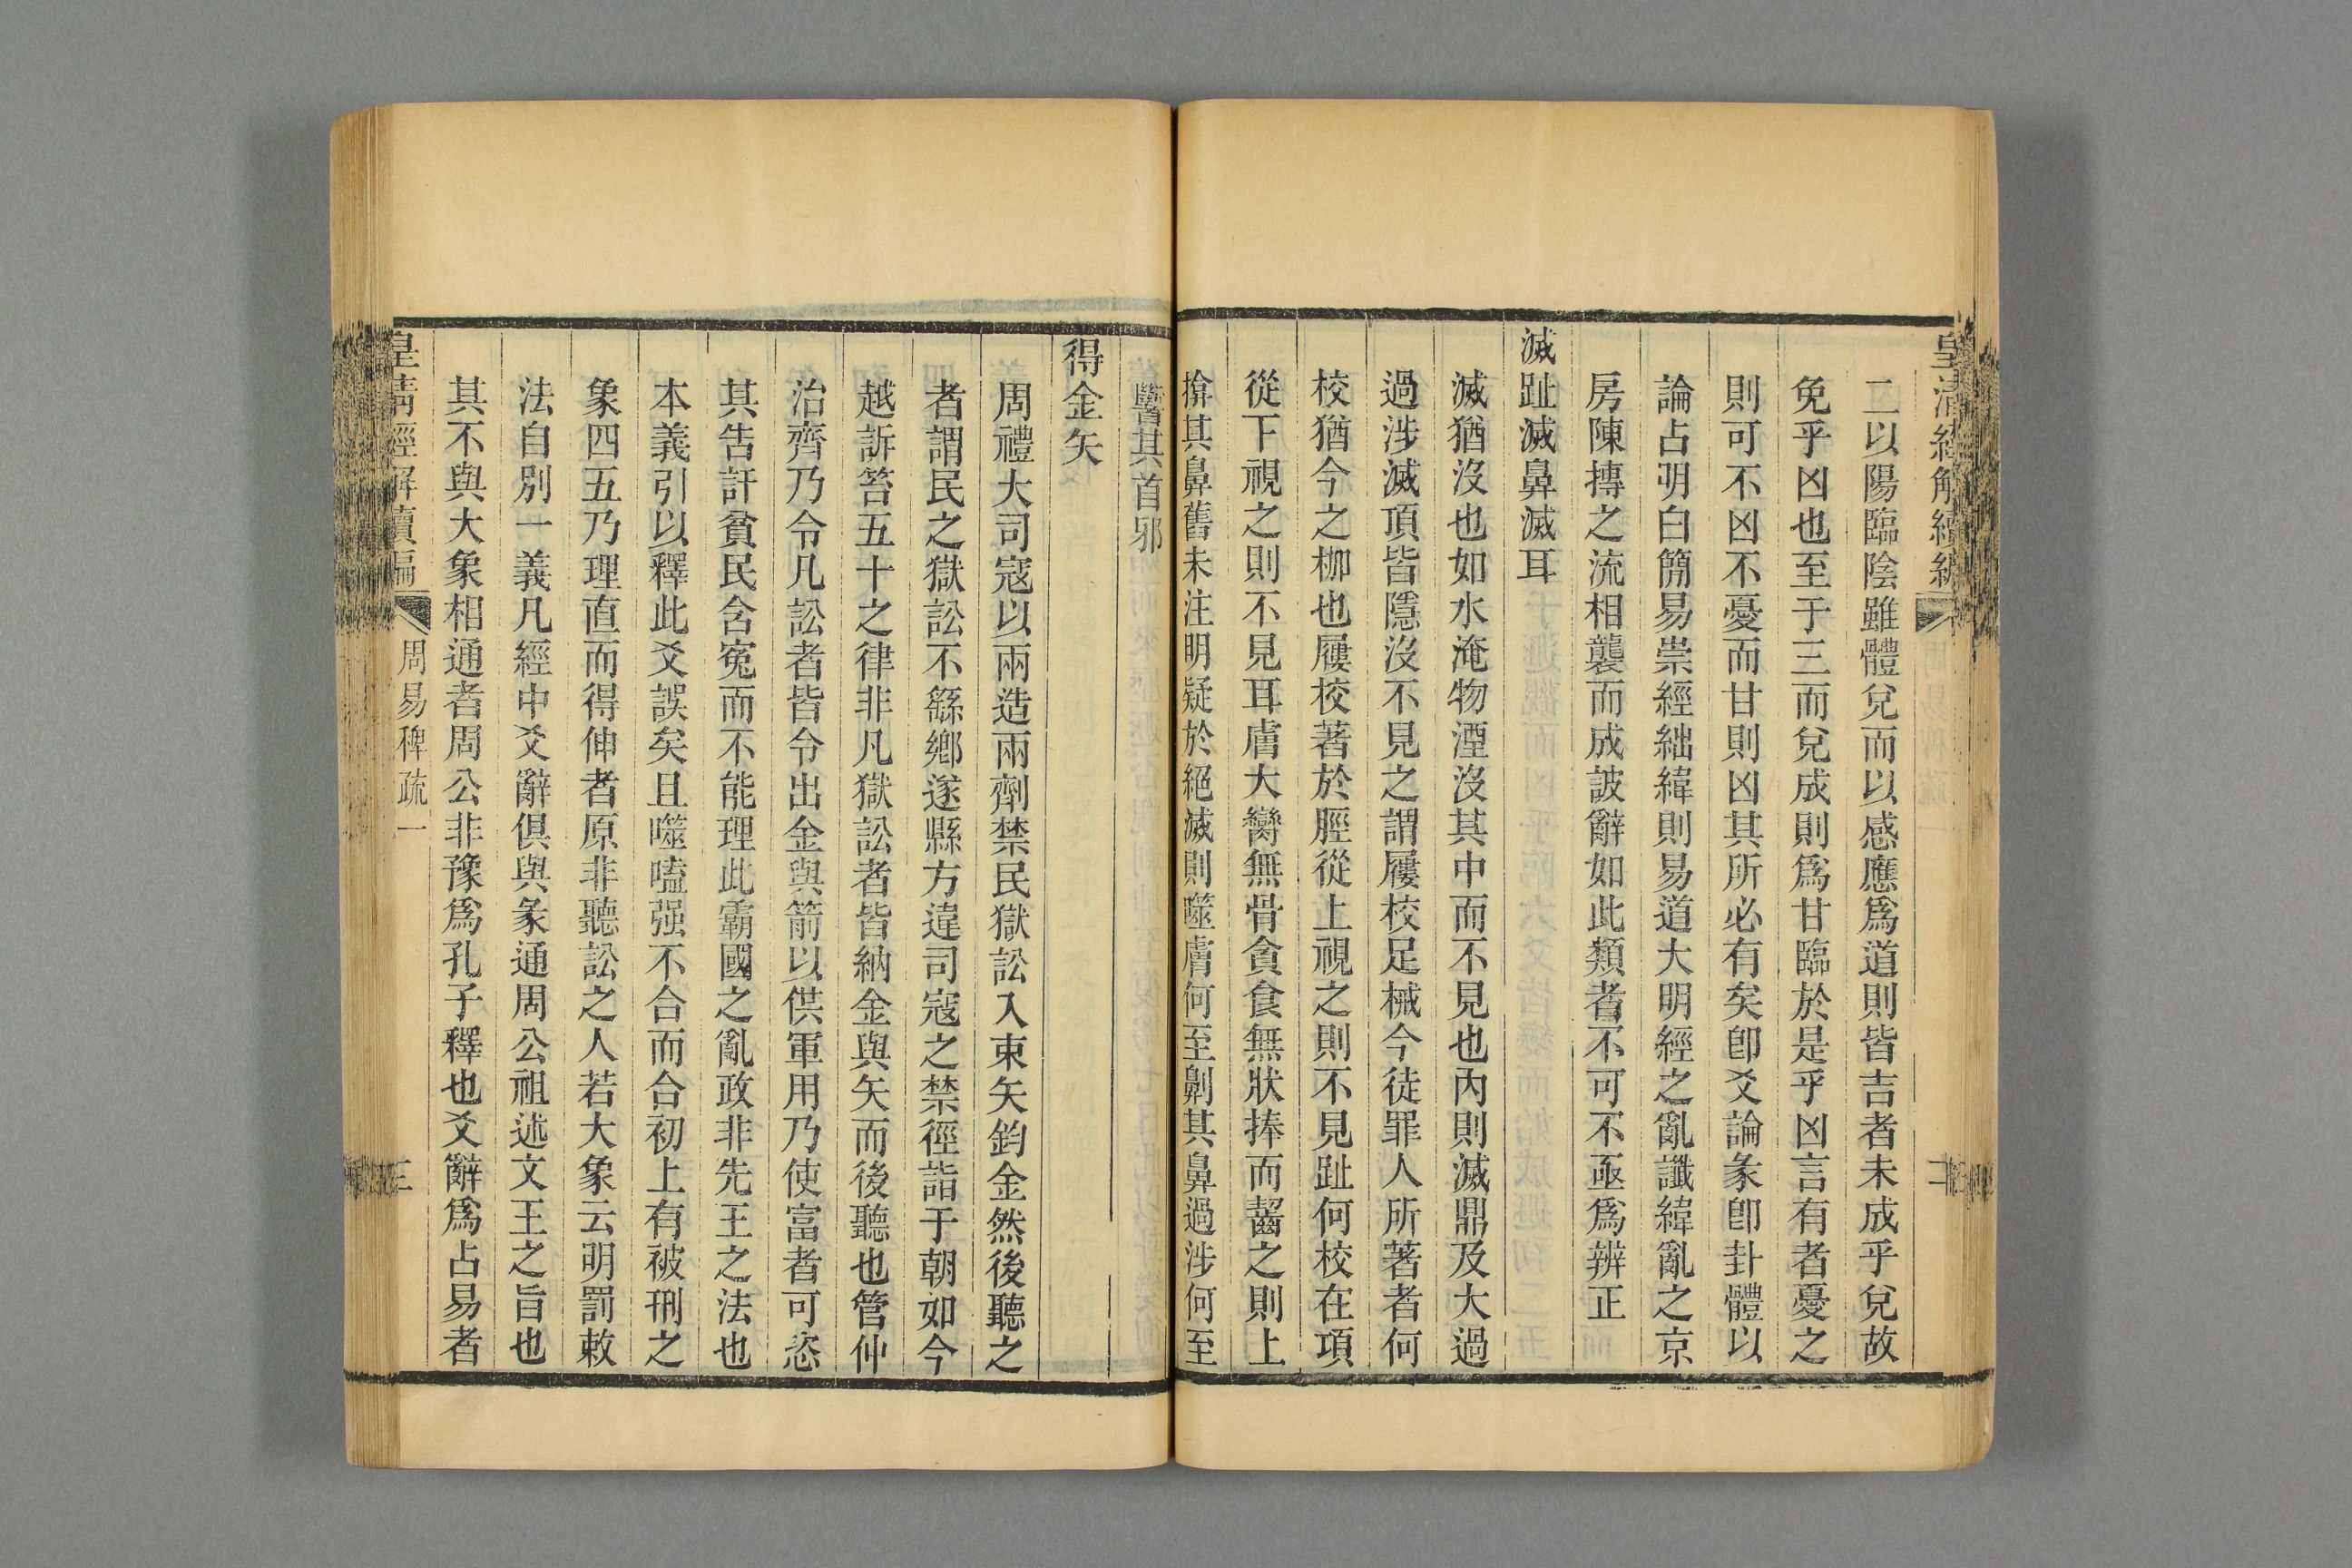 皇清經解續編
二以陽臨陰雖體兌而以感應爲道則皆吉者未成乎兌故
免乎凶也至于三而兌成則爲甘臨於是乎凶言有者憂之
則可不凶不憂而甘則凶其所必有矣卽爻論彖卽卦體以
論占明白簡易崇經絀緯則易道大明經之亂讖緯亂之京
房陳摶之流相襲而成詖辭如此類者不可不亟爲辨正
滅趾滅鼻滅耳
滅猶沒也如水淹物湮沒其中而不見也內則滅鼎及大過
過涉滅頂皆隱沒不見之謂屨校足械今徒罪人所著者何
校猶今之枷也屨校著於脛從上視之則不見趾何校在項
從下視之則不見耳膚大臠無骨貪食無狀捧而齧之則上
揜其鼻舊未注明疑於絕滅則噬膚何至劓其鼻過涉何至
其首邪
得金矢
周禮大司寇以兩造兩劑禁民獄訟入束矢鈞金然後聽之
者謂民之獄訟不繇鄉遂縣方違司寇之禁徑詣于朝如今
越訴笞五十之律非凡獄訟者皆納金與矢而後聽也管仲
治齊乃令凡訟者皆令出金與箭以供軍用乃使富者可恣
其告訐貧民含冤而不能理此霸國之亂政非先王之法也
本義引以釋此爻誤矣且噬嗑强不合而合初上有被刑之
象四五乃理直而得伸者原非聽訟之人若大象云明罰敕
法自別一義凡經中爻辭俱與彖通周公祖述文王之旨也
其不與大象相通者周公非豫爲孔子釋也爻辭爲占易者
皇清經解續編
周易稗疏一
三